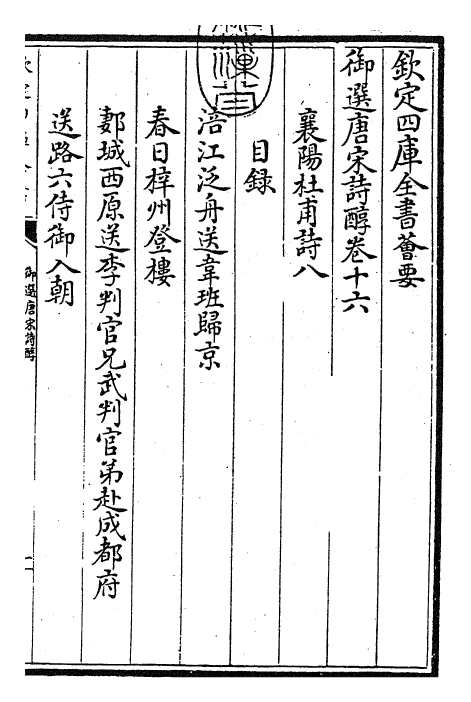 欽定四庫全書薈要
御選唐宋詩醇卷十六
襄陽杜甫詩八
目録
涪江泛舟送韋班歸京
春日梓州登樓
郪城西原送李判官兄武判官弟赴成都府
送路六侍御入朝
御選唐宋詩醇